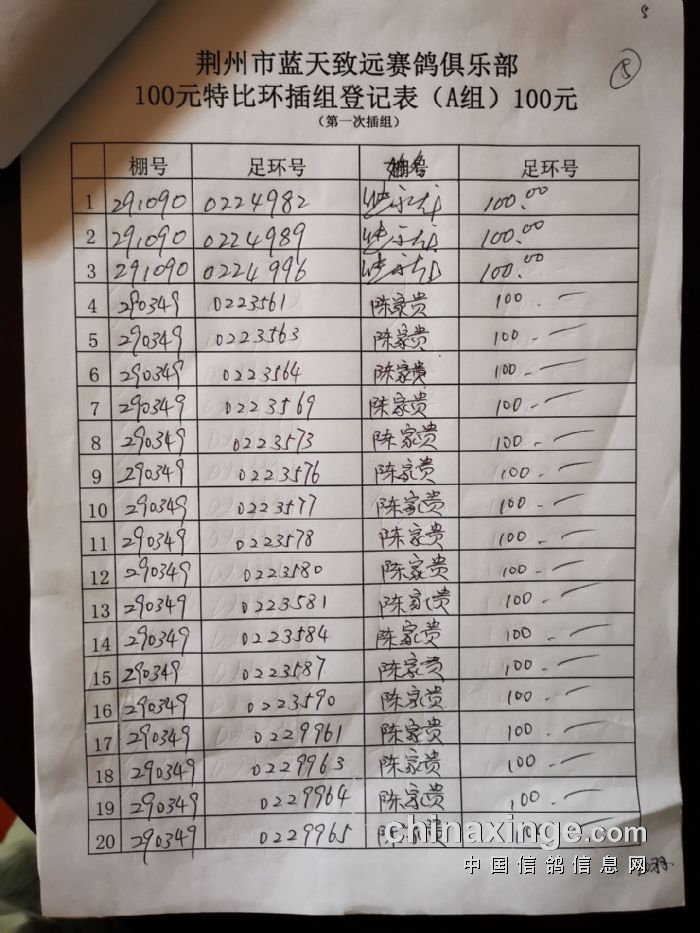 5
5
荆州市蓝天致远赛鸽俱乐部
100元特比环插组登记表（A组）100元
（第一次插组）
棚号 足环号 足环号
1 291090 0224982 100.00
2 291090 0224989 100.00
3 291090 0224996 100.00
4 290349 0223561 陈家贵 100.-
5 290349 0223563 陈家贵 100.-
6 290349 0223564 陈家贵 100.-
7 290349 0223569 陈家贵 100.-
8 290349 0223573 陈家贵 100.-
9 290349 0223576 陈家贵 100.-
10 290349 0223577 陈家贵 100.-
11 290349 0223578 陈家贵 100.-
12 290349 0223580 陈家贵 100.-
13 290349 0223581 陈家贵 100.-
14 290349 0223584 陈家贵 100.-
15 290349 0223587 陈家贵 100.-
16 290349 0223590 陈家贵 100.-
17 290349 0229961 陈家贵 100.-
18 290349 0229963 陈家贵 100.-
19 290349 0229964 陈家贵 100.-
20 290349 0229965 陈家贵 100.-
chinaxinge.com
中国信鸽信息网